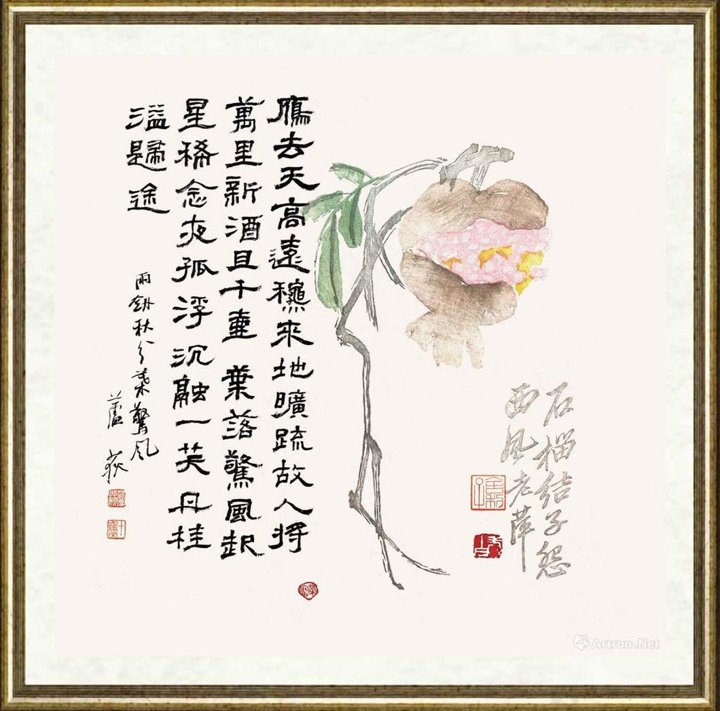 石榴結子怨
西風老萍
鴈去天高遠穐來地曠疏故人将
萬里新酒且千壺 葉落驚風起
星稀念夜孤浮沉融一笑丹桂
溢歸途
秋分葉驚風
蘆荻
Artron.Net